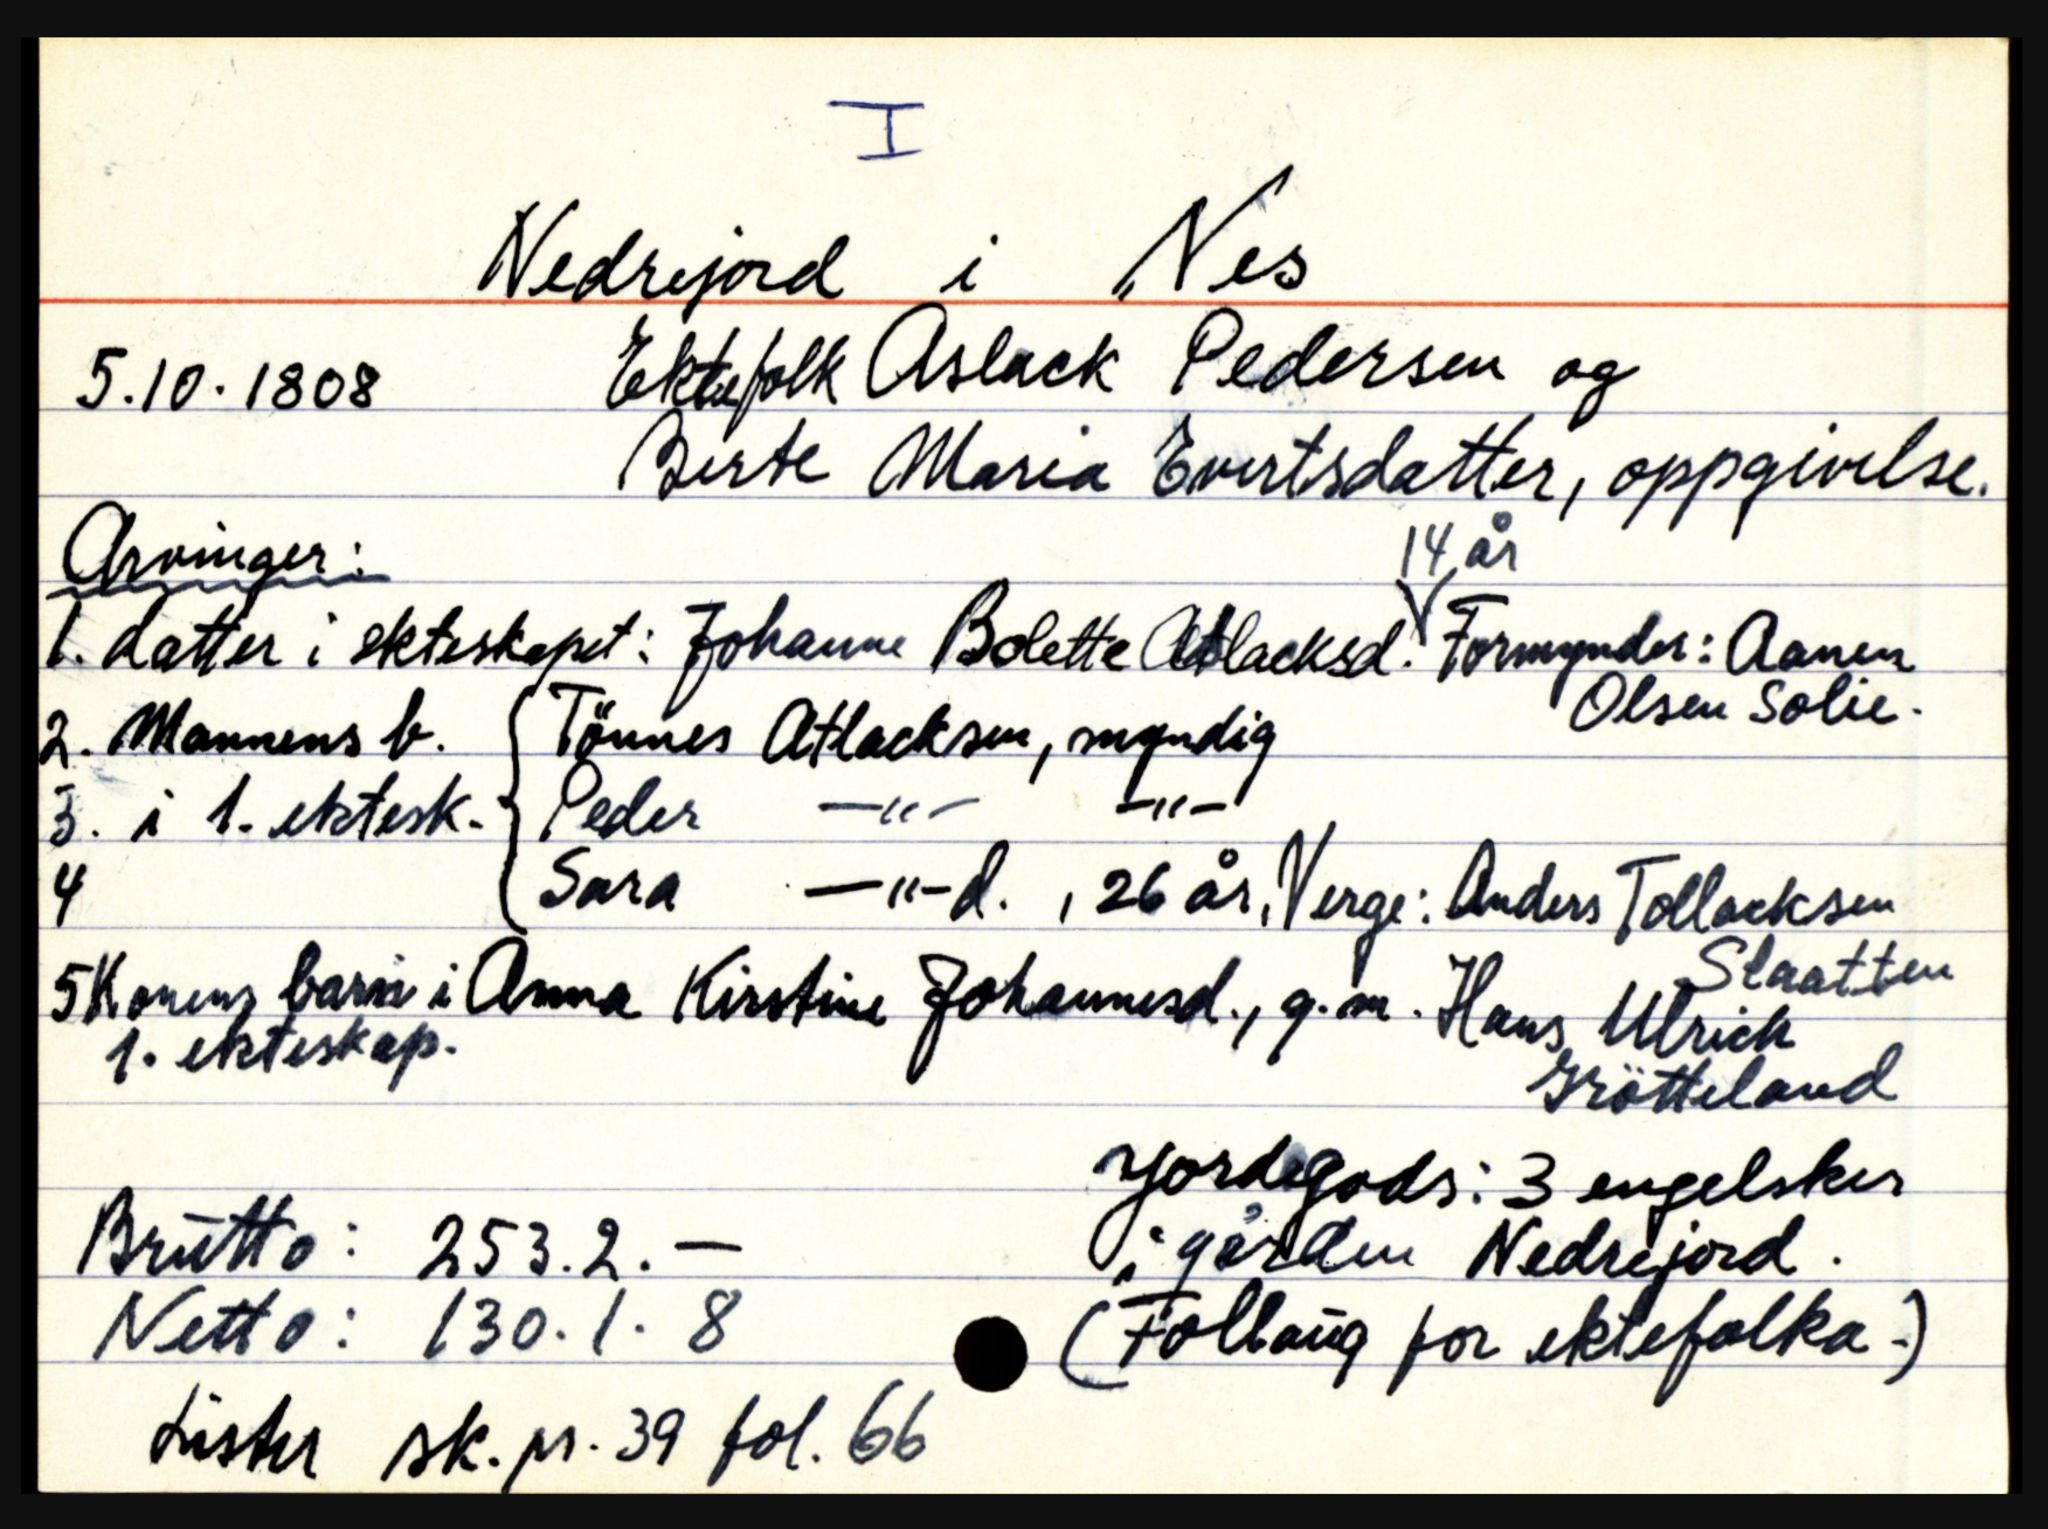 I
Nedrejord i Nes
5.10.1808 Ektefolk Aslack Pedersen og
Berte Maria Evertsdatter, oppgivelse.
Arvinger:
14 år
1. datter i ekteskapet: Johanne Bolette Atlacksd. Formynder: Aanen
Olsen Solie.
2. Mannens b. Tönnes Atlacksen, myndig
3. i 1. ektesk. Peder —"— —"—
4 Sara —"—d., 26 år, Verge: Anders Tollacksen
Slaatten
5 Konens barn i Anna Kirstine Johannesd., g.m. Hans Ulrick
1. ekteskap. Grötteland
Jordegods: 3 engelsker
Brutto: 253.2.— i gården Nedrejord.
Netto: 130.1.8 (Follaug for ektefolka.)
Lister sk.pr. 39 fol. 66